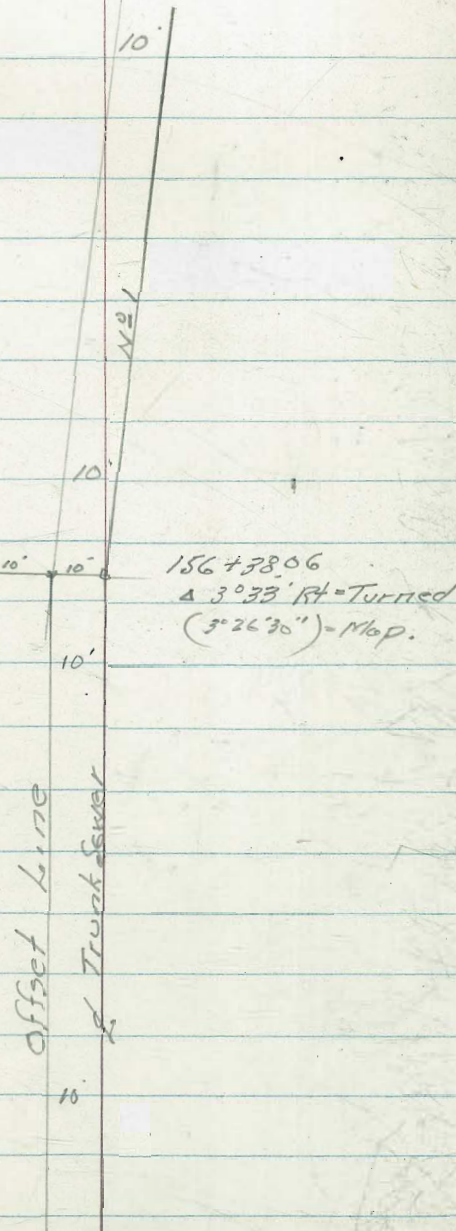 10'
Nº 1
10'
10' 10'
156+38.06
Δ 3°33' Rt = Turned
(3°26'30") = Map.
10'
Offset Line
℄ Trunk Sewer
10'